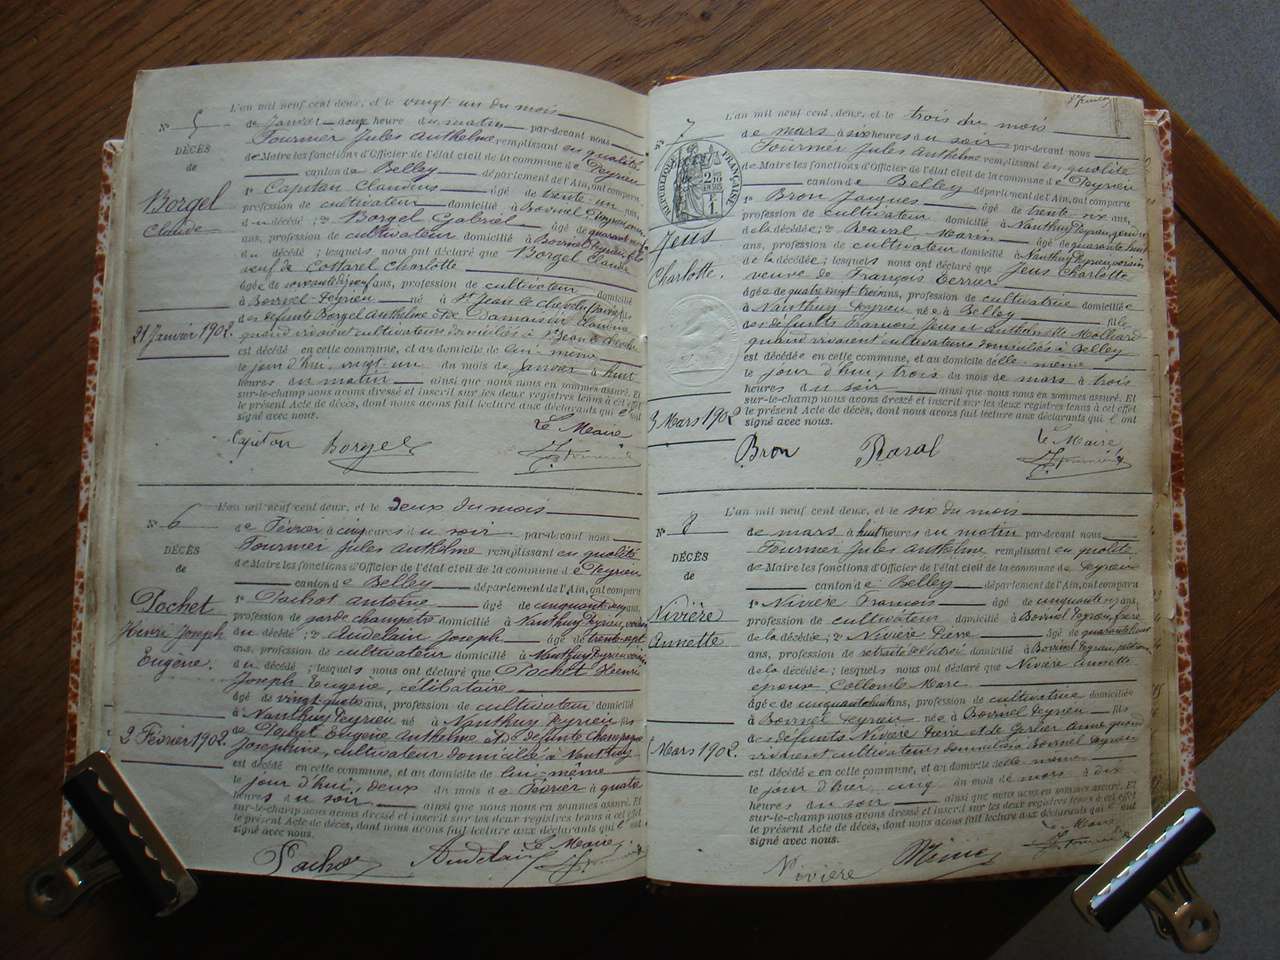 L'an mil neuf cent deux, et le vingt un du mois
de Janvier à onze heure du matin par-devant nous
Fournier Jules Anthelme remplissant en qualité
de Maire les fonctions d'Officier de l'état civil de la commune de Peyrieu
canton de Belley département de l'Ain, ont comparu
1° Capitan Claudius âgé de trente un ans,
profession de cultivateur domicilié à
du décédé ; 2° Borgel Gabriel âgé de quarante
ans, profession de cultivateur domicilié à
du décédé ; lesquels nous ont déclaré que Borgel Claude
veuf de Cottarel Charlotte
âgé de soixante ans, profession de cultivateur domicilié
à Peyrieu né à St Jean le
des défunts Borgel Anthelme et de
quand vivaient cultivateurs domiciliés à St Jean
est décédé en cette commune, et au domicile de lui-même
le jour d'hui, vingt-un du mois de Janvier à huit
heures du matin ainsi que nous nous en sommes assuré. Et
sur-le-champ nous avons dressé et inscrit sur les deux registres tenus à cet effet
le présent Acte de décès, dont nous avons fait lecture aux déclarants qui l'ont
signé avec nous.
N° 5
DÉCÈS
de
Borgel
Claude
21 Janvier 1902.
Le Maire
Capitan Borgel
L'an mil neuf cent deux, et le deux du mois
de Février à cinq heures du soir par-devant nous
Fournier Jules Anthelme remplissant en qualité
de Maire les fonctions d'Officier de l'état civil de la commune de Peyrieu
canton de Belley département de l'Ain, ont comparu
1° Pachot Antoine âgé de cinquante ans,
profession de garde champetre domicilié à Nanthuy Peyrieu
du décédé ; 2° Audelain Joseph âgé de trente sept
ans, profession de cultivateur domicilié à Nanthuy Peyrieu
du décédé ; lesquels nous ont déclaré que Pochet Henri
Joseph Eugène, célibataire
âgé de vingt ans, profession de cultivateur domicilié
à Nanthuy Peyrieu né à Nanthuy Peyrieu fils
de Pochet Eugène Anthelme et de défunte
Josephine, cultivateur domicilié à Nanthuy
est décédé en cette commune, et au domicile de lui-même
le jour d'hui, deux du mois de Février à quatre
heures du soir ainsi que nous nous en sommes assuré. Et
sur-le-champ nous avons dressé et inscrit sur les deux registres tenus à cet effet
le présent Acte de décès, dont nous avons fait lecture aux déclarants qui l'ont
signé avec nous.
N° 6
DÉCÈS
de
Pochet
Henri Joseph
Eugène.
2 Février 1902.
Le Maire
Pachot Audelain
L'an mil neuf cent deux, et le trois du mois
de mars à six heures du soir par-devant nous
Fournier Jules Anthelme remplissant en qualité
de Maire les fonctions d'Officier de l'état civil de la commune de Peyrieu
canton de Belley département de l'Ain, ont comparu
1° Bron Jacques âgé de trente six ans,
profession de cultivateur domicilié à Nanthuy Peyrieu gendre
de la décédée ; 2° Raval Marin âgé de quarante huit
ans, profession de cultivateur domicilié à Nanthuy Peyrieu voisin
de la décédée ; lesquels nous ont déclaré que Jeus Charlotte
veuve de François Terrier
âgée de quatre vingt trois ans, profession de cultivatrice domiciliée
à Nanthuy Peyrieu née à Belley fille
des défunts François Jeus et Anthelmette
quand vivaient cultivateurs domiciliés à Belley
est décédée en cette commune, et au domicile d'elle même
le jour d'hui, trois du mois de mars à trois
heures du soir ainsi que nous nous en sommes assuré. Et
sur-le-champ nous avons dressé et inscrit sur les deux registres tenus à cet effet
le présent Acte de décès, dont nous avons fait lecture aux déclarants qui l'ont
signé avec nous.
N° 7
RÉPUBLIQUE FRANÇAISE
Jeus
Charlotte.
3 Mars 1902
Le Maire
Bron Raval
L'an mil neuf cent deux, et le six du mois
de mars à huit heures du matin par-devant nous
Fournier Jules Anthelme remplissant en qualité
de Maire les fonctions d'Officier de l'état civil de la commune de Peyrieu
canton de Belley département de l'Ain, ont comparu
1° Nivière François âgé de cinquante ans,
profession de cultivateur domicilié à Peyrieu, frère
de la décédée ; 2° Nivière Pierre âgé de quarante
ans, profession de domicilié à Peyrieu,
de la décédée ; lesquels nous ont déclaré que Nivière Annette
épouse Collomb Marc
âgée de cinquante ans, profession de cultivatrice domiciliée
à Peyrieu née à Peyrieu fille
des défunts Nivière Pierre et de Anne quand
vivaient cultivateurs domiciliés à Peyrieu
est décédée en cette commune, et au domicile d'elle même
le jour d'hier, cinq du mois de mars à dix
heures du soir ainsi que nous nous en sommes assuré. Et
sur-le-champ nous avons dressé et inscrit sur les deux registres tenus à cet effet
le présent Acte de décès, dont nous avons fait lecture aux déclarants qui l'ont
signé avec nous.
N° 8
DÉCÈS
de
Nivière
Annette
Mars 1902.
Le Maire
Nivière